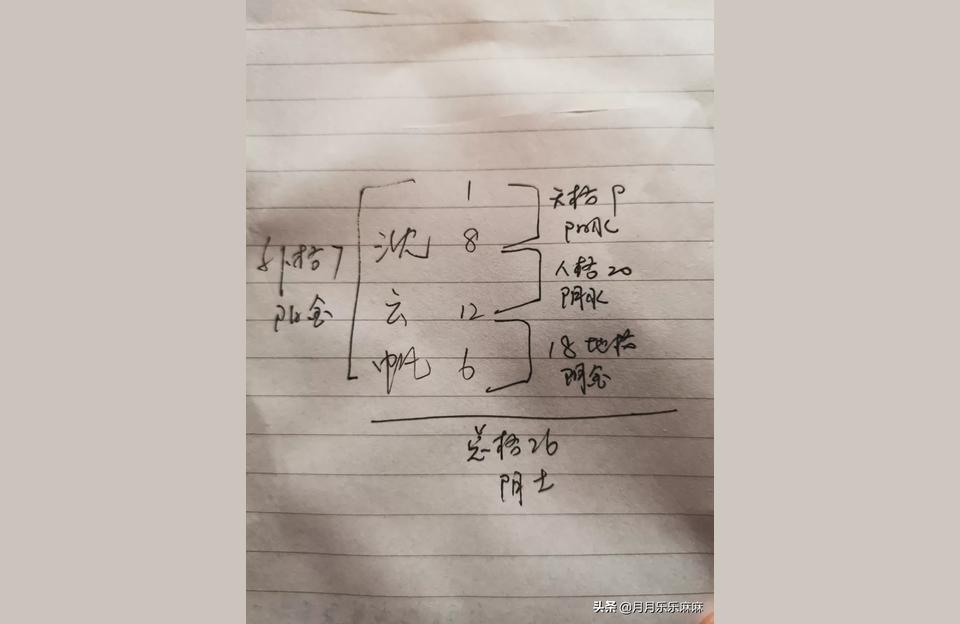 1
天格 9
阳水
沈 8
外格 7
阳金
人格 20
阴水
云 12
18 地格
阴金
帆 6
总格 26
阴土
头条 @月月乐乐麻麻